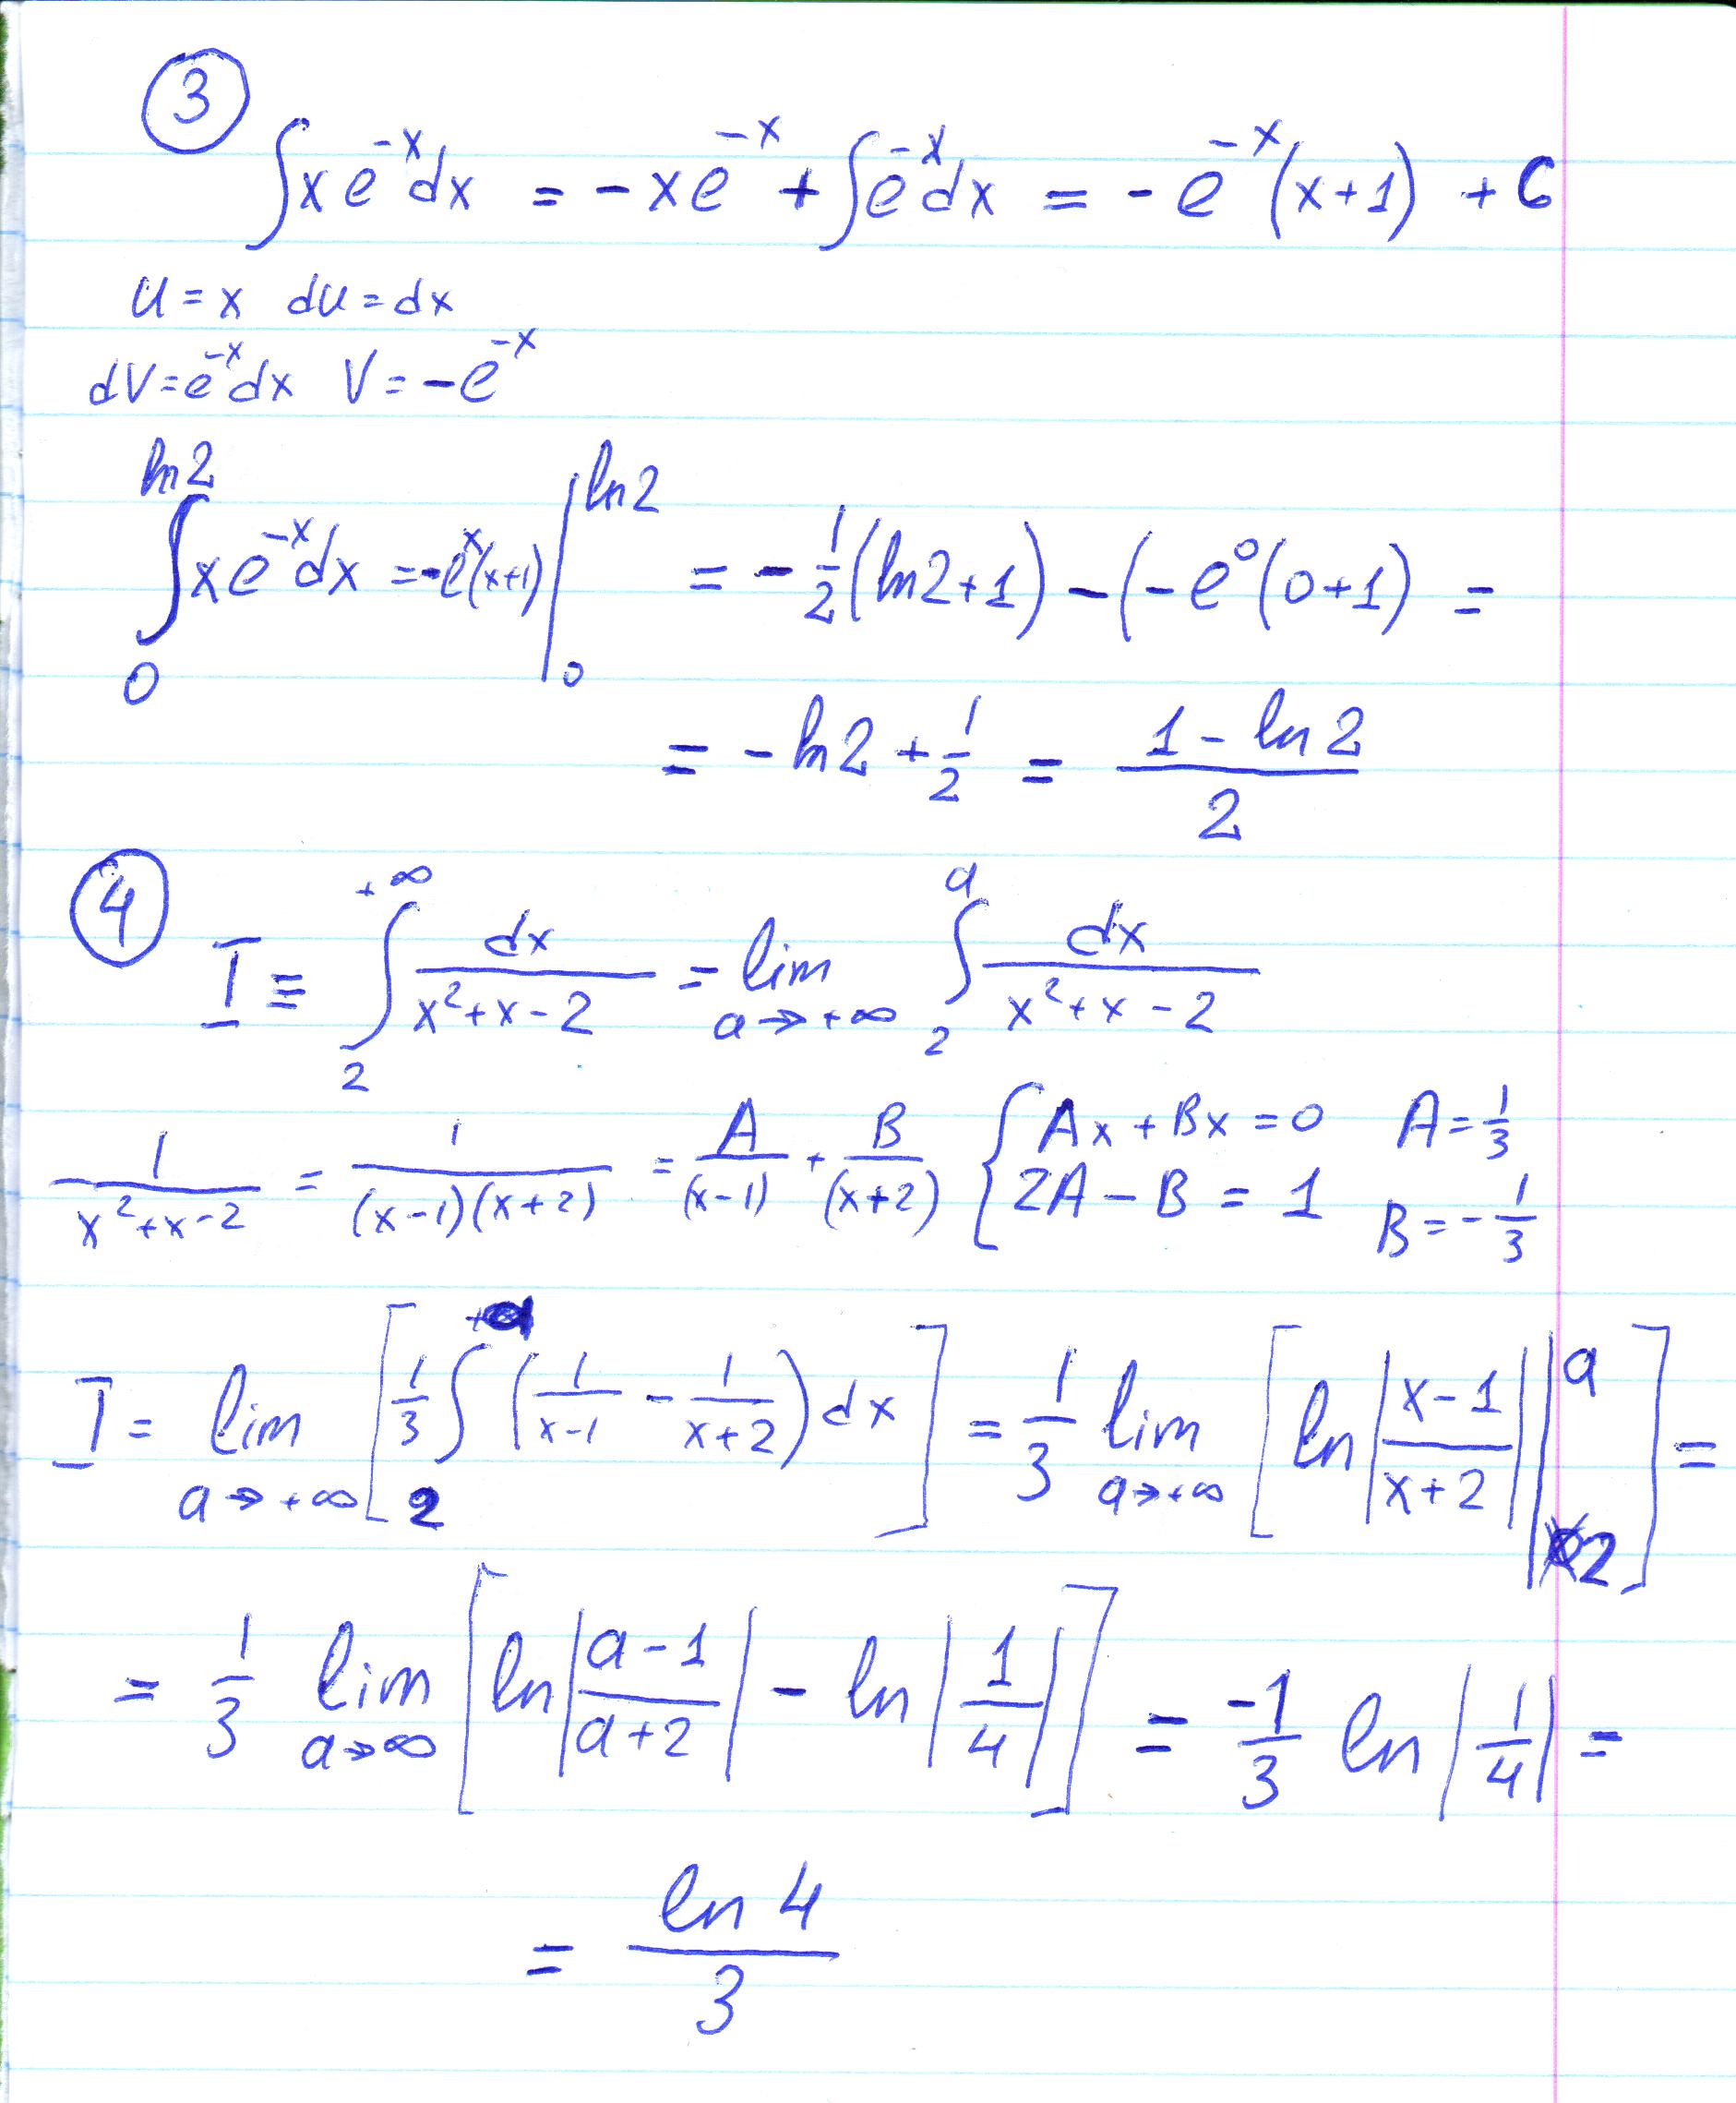 ③
∫xe^{-x}dx = -xe^{-x} + ∫e^{-x}dx = -e^{-x}(x+1) + C
u=x du=dx
dV=e^{-x}dx V=-e^{-x}
∫_0^{ln2} xe^{-x}dx = -e^{x}(x+1)|_0^{ln2} = -1/2(ln2+1)-(-e^0(0+1) =
= -ln2 + 1/2 = (1-ln2)/2
④
I = ∫_2^{+∞} dx/(x^2+x-2) = lim_{a→+∞} ∫_2^a dx/(x^2+x-2)
1/(x^2+x-2) = 1/((x-1)(x+2)) = A/(x-1) + B/(x+2) { Ax+Bx=0 A=1/3
2A-B=1 B=-1/3
I = lim_{a→+∞} [1/3 ∫_2^{+a} (1/(x-1) - 1/(x+2))dx] = 1/3 lim_{a→+∞} [ln|(x-1)/(x+2)||_2^a] =
= 1/3 lim_{a→∞} [ln|(a-1)/(a+2)| - ln|1/4|] = -1/3 ln|1/4| =
= ln4/3